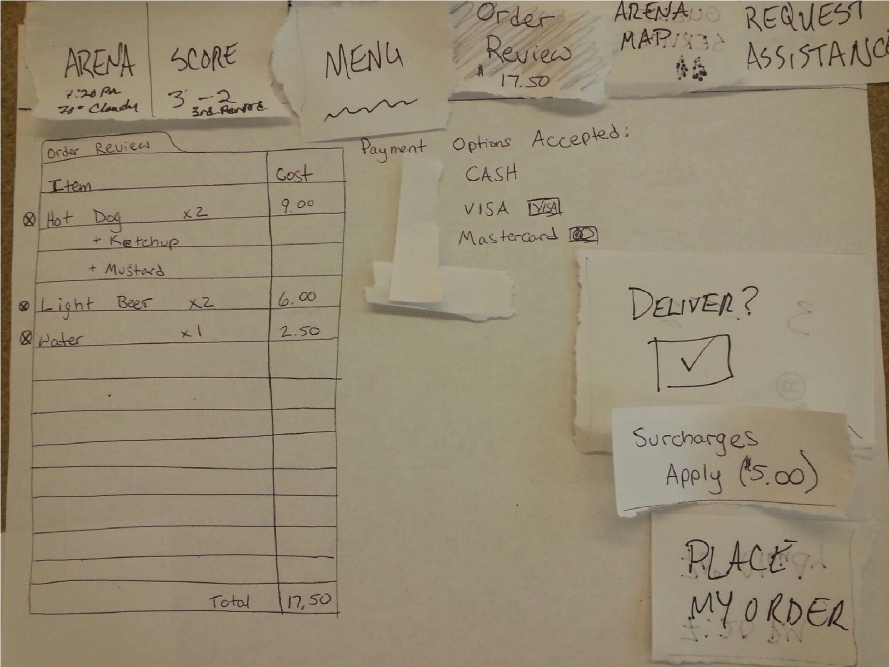 ARENA
7:20 PM
70° Cloudy
SCORE
3 - 2
3rd Period
MENU
Order
Review
$ 17.50
ARENA
MAP
REQUEST
ASSISTANC
Order Review
Item Cost
Hot Dog x2 9.00
+ Ketchup
+ Mustard
Light Beer x2 6.00
Water x1 2.50
Total 17.50
Payment Options Accepted:
CASH
VISA VISA
Mastercard
DELIVER?
Surcharges
Apply ($5.00)
PLACE
MY ORDER